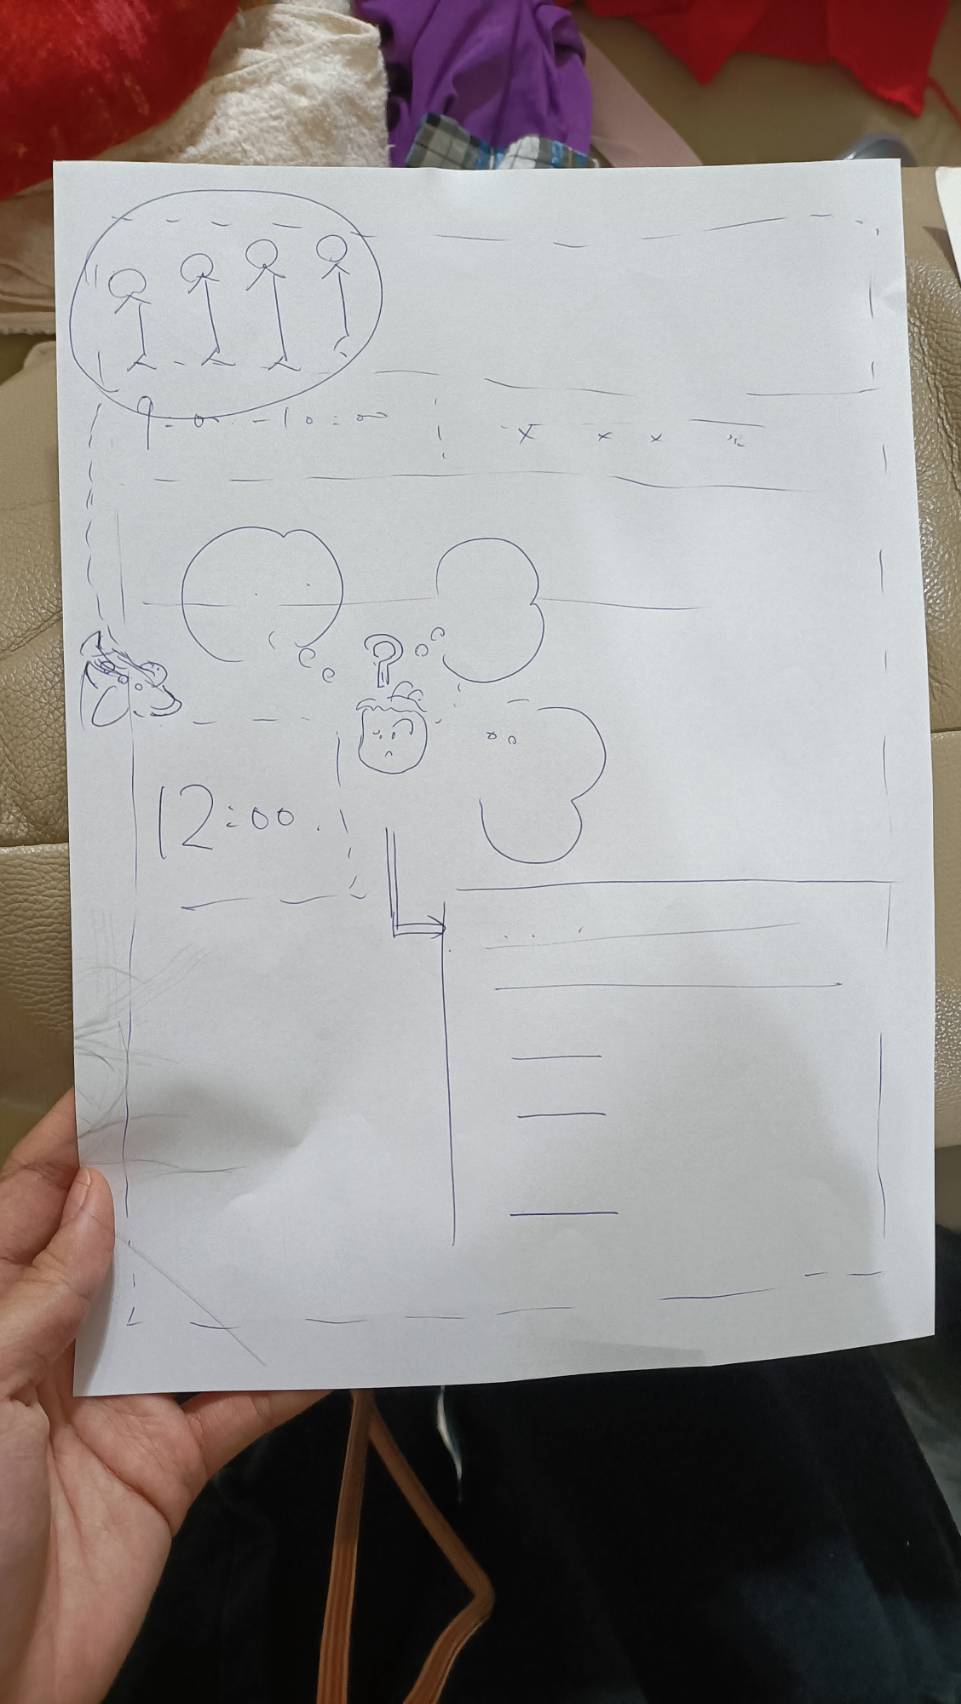 9:00-10:00
x x x x
?
12:00